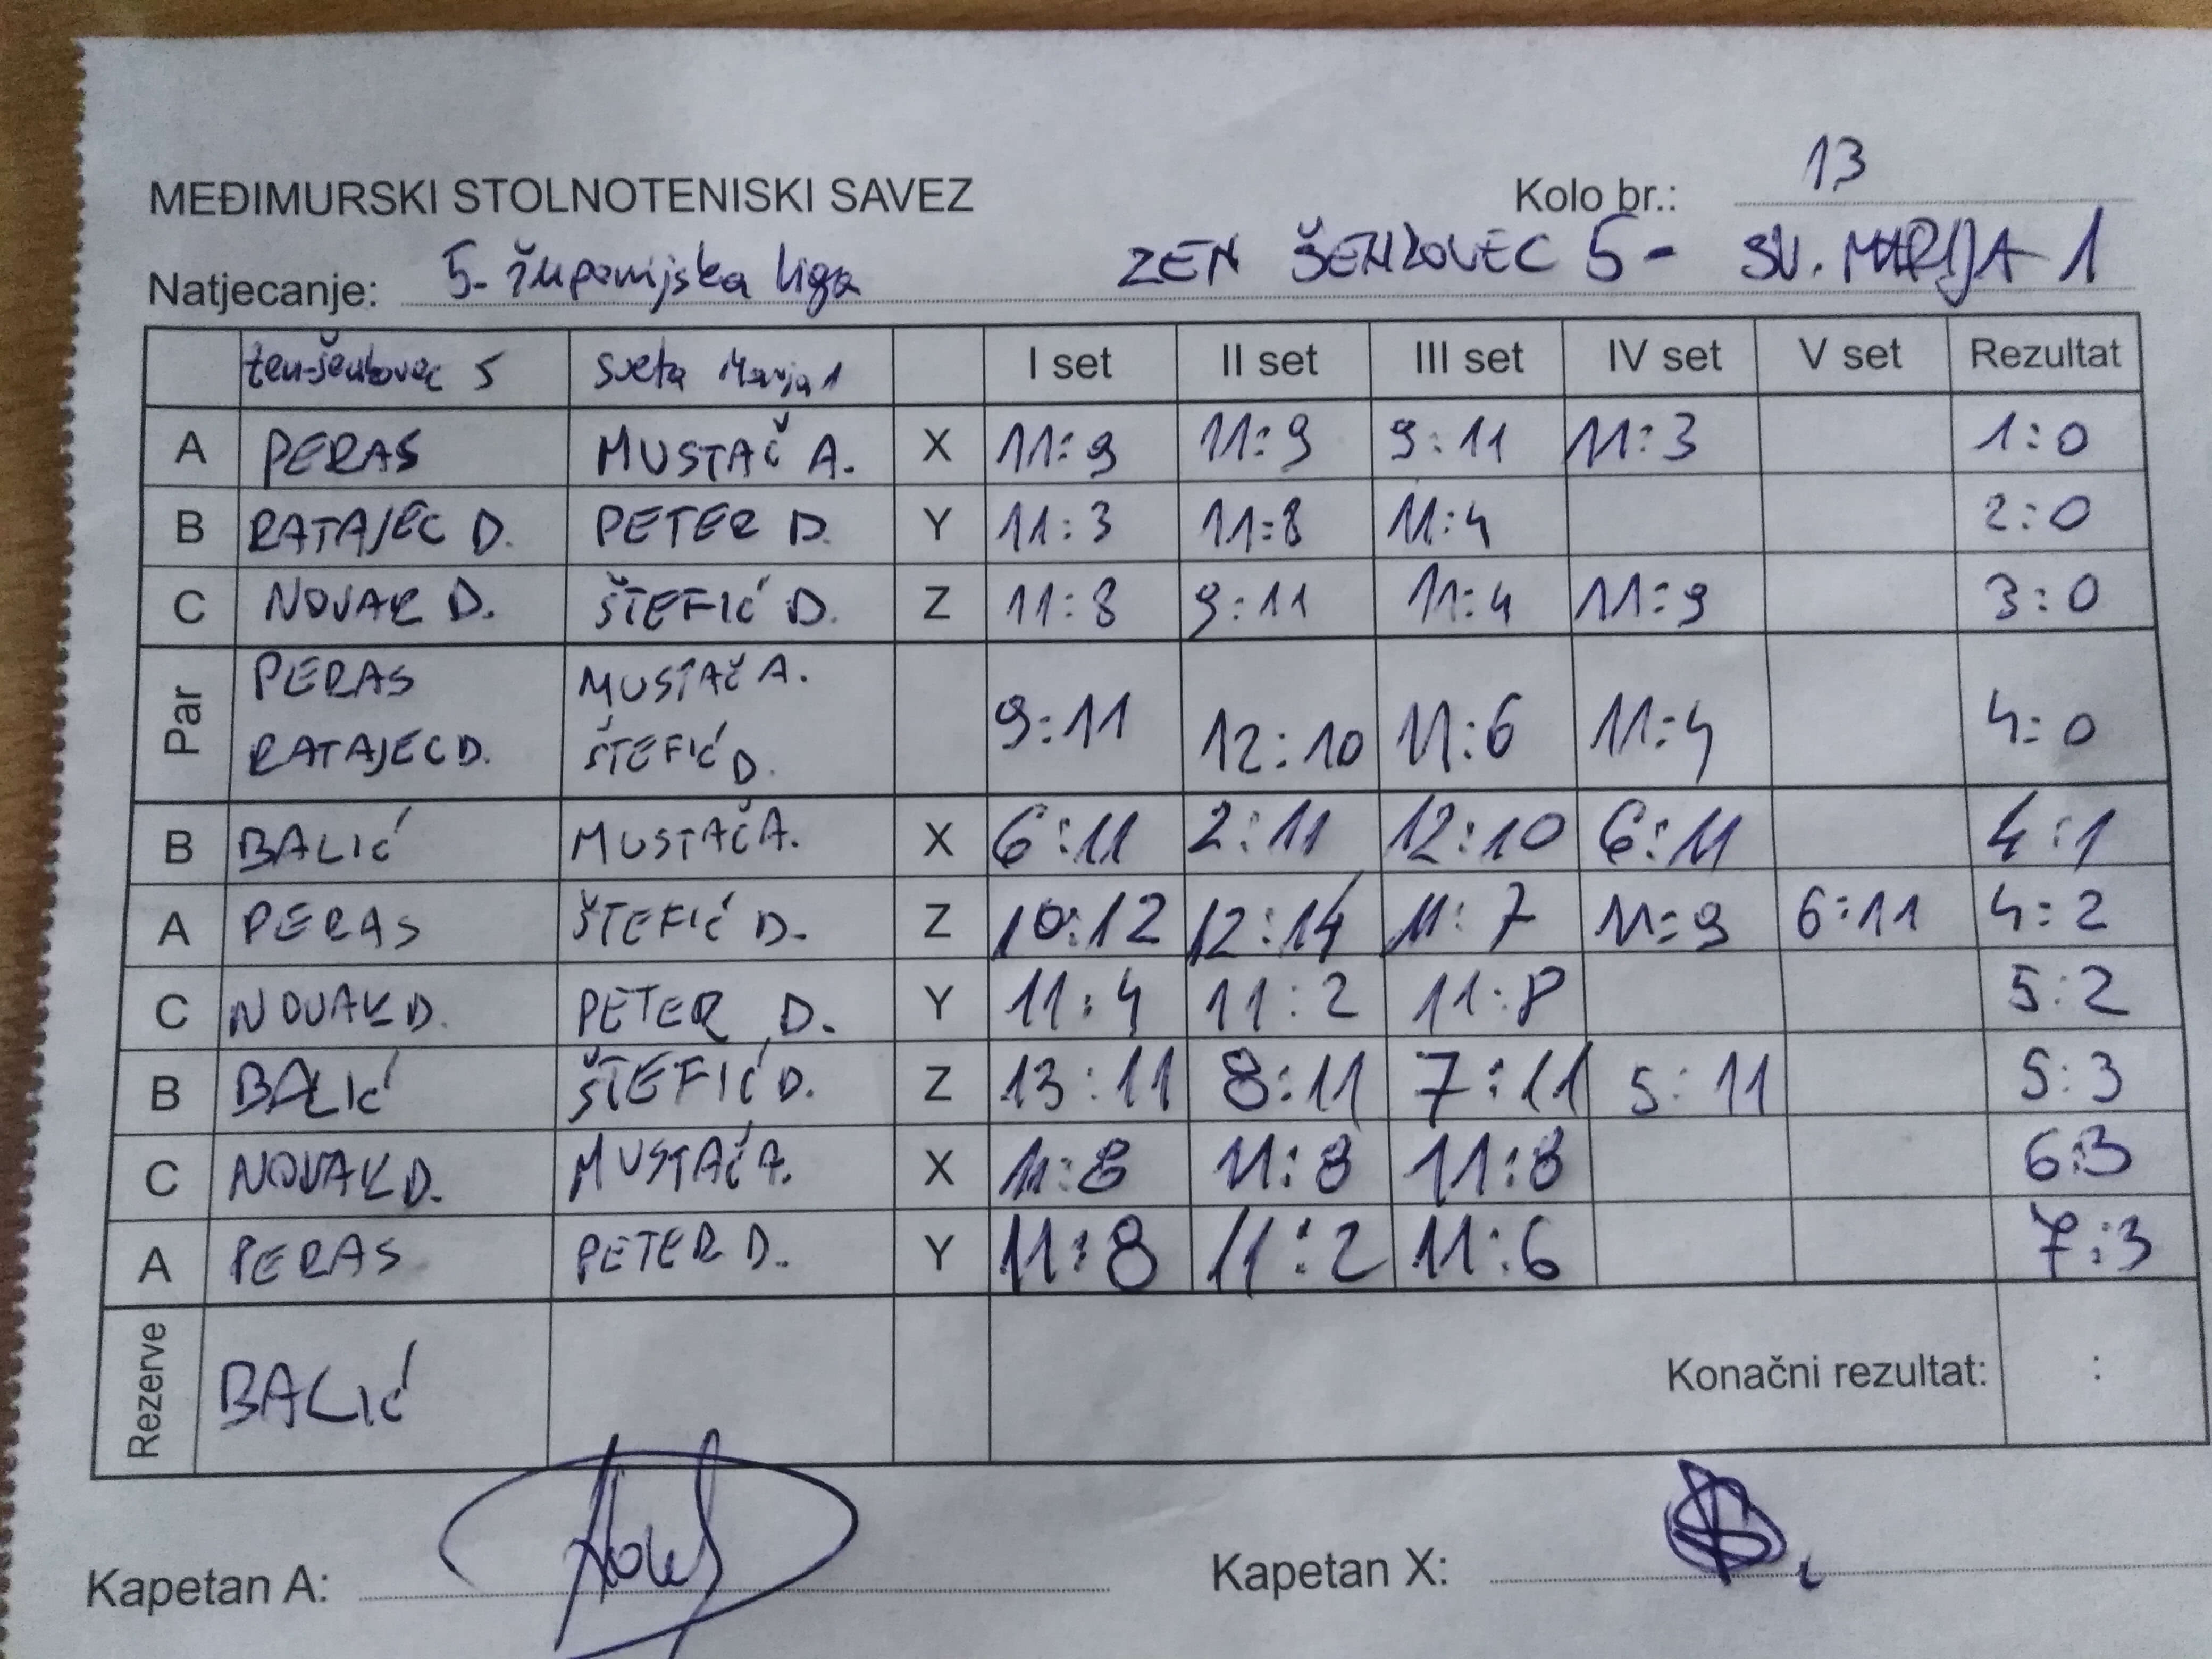 MEĐIMURSKI STOLNOTENISKI SAVEZ Kolo br.: 13
Natjecanje: 5. županijska liga ZEN ŠENKOVEC 5 - SV. MARIJA 1
Zen-Šenkovec 5 Sveta Marija 1 I set II set III set IV set V set Rezultat
A PERAS MUSTAČ A. X 11:9 11:9 9:11 11:3 1:0
B RATAJEC D. PETER D. Y 11:3 11:8 11:4 2:0
C NOVAK D. ŠTEFIĆ D. Z 11:8 9:11 11:4 11:9 3:0
Par PERAS RATAJEC D. MUSTAČ A. ŠTEFIĆ D. 9:11 12:10 11:6 11:4 4:0
B BALIĆ MUSTAČ A. X 6:11 2:11 12:10 6:11 4:1
A PERAS ŠTEFIĆ D. Z 10:12 12:14 11:7 11:9 6:11 4:2
C NOVAK D. PETER D. Y 11:4 11:2 11:8 5:2
B BALIĆ ŠTEFIĆ D. Z 13:11 8:11 7:11 5:11 5:3
C NOVAK D. MUSTAČ A. X 11:8 11:8 11:8 6:3
A PERAS PETER D. Y 11:8 11:2 11:6 7:3
Rezerve BALIĆ Konačni rezultat: :
Kapetan A: Kapetan X: